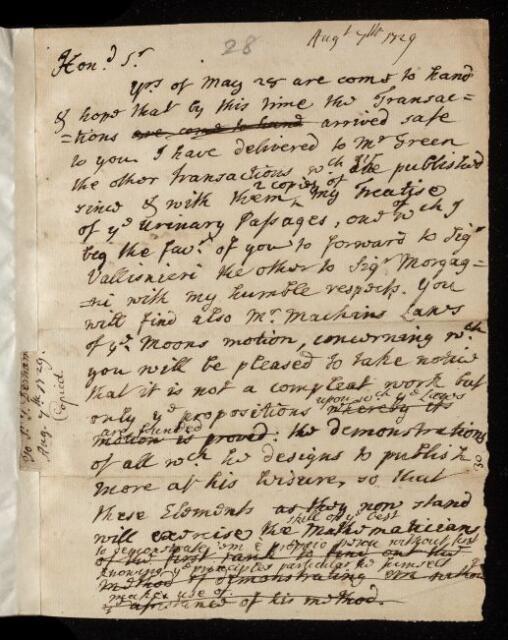 28
Augt 7th 1729
Hond Sr
Yrs of May 28 are come to hand
& hope that by this time the Transac=
=tions are come to hand arrived safe
to you. I have delivered to Mr Green
the other Transactions wch are published
since & with them 2 copies of my Treatise
of ye Urinary Passages, one of wch I
beg the favr of you to forward to Sigr
Vallisnieri the other to Sigr Morgag=
=ni with my humble respects. You
will find also Mr Machins Laws
of ye Moons motion, concerning wch
you will be pleased to take notice
that it is not a compleat work but
only ye propositions upon wch ye Laws whereby its
are founded
motion is proved: the demonstrations
of all wch he designs to publish
more at his leidure, so that
these Elements as they now stand
will exercise the skill of ye best Mathematicians
to demonstrate 'em without first
of the first rank to find out the
knowing ye principles particular he himself
method of demonstrating em
makes use of.
assistance of his method.
To Sr T. Derham
Aug. 7th 1729.
Copied
30